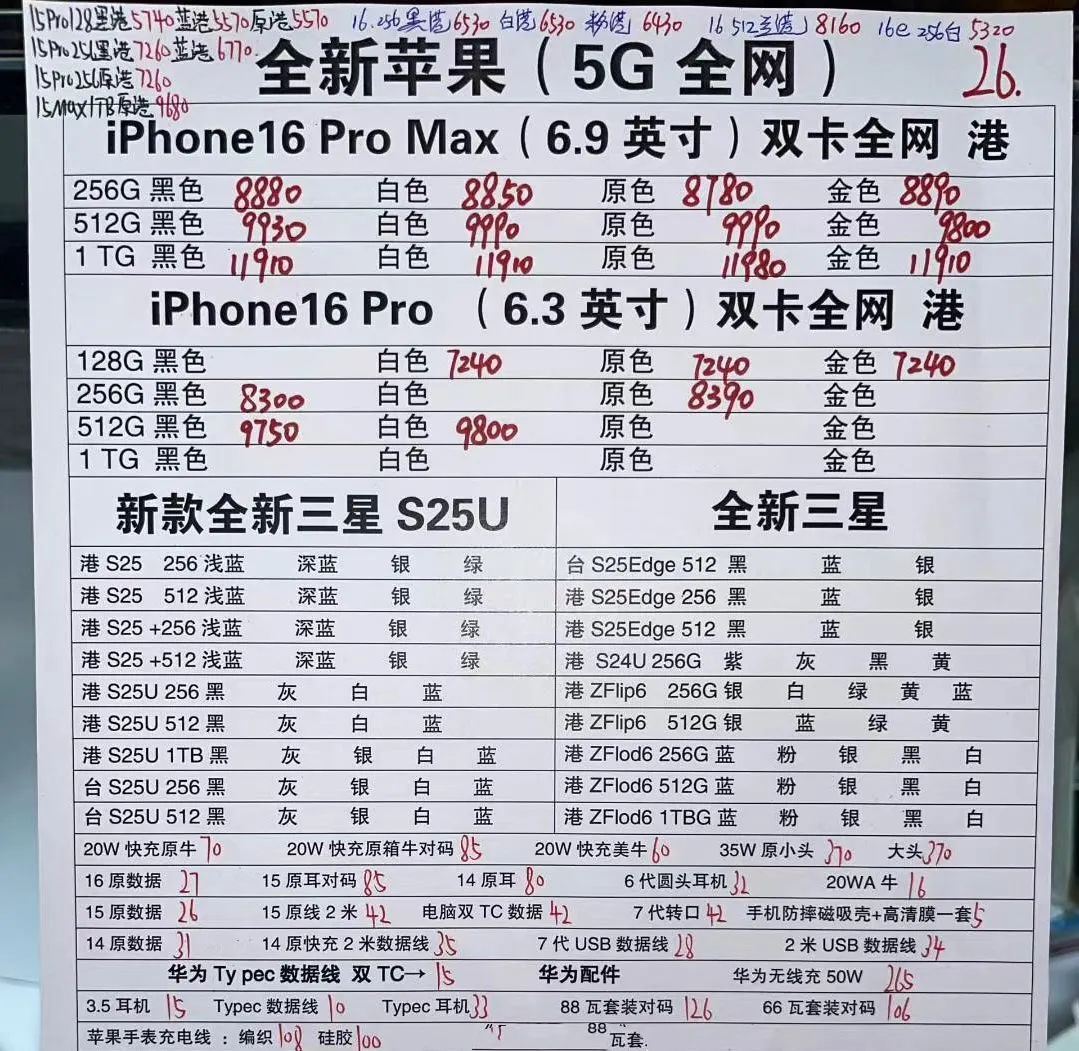 15Pro128黑港5740蓝港5570原港5570 16.256黑港6530白港6530粉港6430 16 512兰港8160 16e 256白5320
15Pro256黑港7260蓝港6770.
15Pro256原港7260
15Max1TB原港9680
全新苹果(5G 全网) 26.
iPhone16 Pro Max(6.9 英寸)双卡全网 港
256G 黑色 8880 白色 8850 原色 8780 金色 8890
512G 黑色 9930 白色 9990 原色 9990 金色 9800
1 TG 黑色 11910 白色 11910 原色 11980 金色 11910
iPhone16 Pro (6.3 英寸)双卡全网 港
128G 黑色 白色 7240 原色 7240 金色 7240
256G 黑色 8300 白色 原色 8390 金色
512G 黑色 9750 白色 9800 原色 金色
1 TG 黑色 白色 原色 金色
新款全新三星 S25U 全新三星
港 S25 256 浅蓝 深蓝 银 绿 台 S25Edge 512 黑 蓝 银
港 S25 512 浅蓝 深蓝 银 绿 港 S25Edge 256 黑 蓝 银
港 S25 +256 浅蓝 深蓝 银 绿 港 S25Edge 512 黑 蓝 银
港 S25 +512 浅蓝 深蓝 银 绿 港 S24U 256G 紫 灰 黑 黄
港 S25U 256 黑 灰 白 蓝 港 ZFlip6 256G 银 白 绿 黄 蓝
港 S25U 512 黑 灰 白 蓝 港 ZFlip6 512G 银 蓝 绿 黄
港 S25U 1TB 黑 灰 银 白 蓝 港 ZFlod6 256G 蓝 粉 银 黑 白
台 S25U 256 黑 灰 银 白 蓝 港 ZFlod6 512G 蓝 粉 银 黑 白
台 S25U 512 黑 灰 银 白 蓝 港 ZFlod6 1TBG 蓝 粉 银 黑 白
20W 快充原牛 70 20W 快充原箱牛对码 85 20W 快充美牛 60 35W 原小头 370 大头 370
16 原数据 27 15 原耳对码 85 14 原耳 80 6 代圆头耳机 32 20WA 牛 16
15 原数据 26 15 原线 2 米 42 电脑双 TC 数据 42 7 代转口 42 手机防摔磁吸壳+高清膜一套 5
14 原数据 31 14 原快充 2 米数据线 35 7 代 USB 数据线 28 2 米 USB 数据线 34
华为 Ty pec 数据线 双 TC→ 15 华为配件 华为无线充 50W 265
3.5 耳机 15 Typec 数据线 10 Typec 耳机 33 88 瓦套装对码 126 66 瓦套装对码 106
苹果手表充电线 : 编织 108 硅胶 100 88 瓦套.